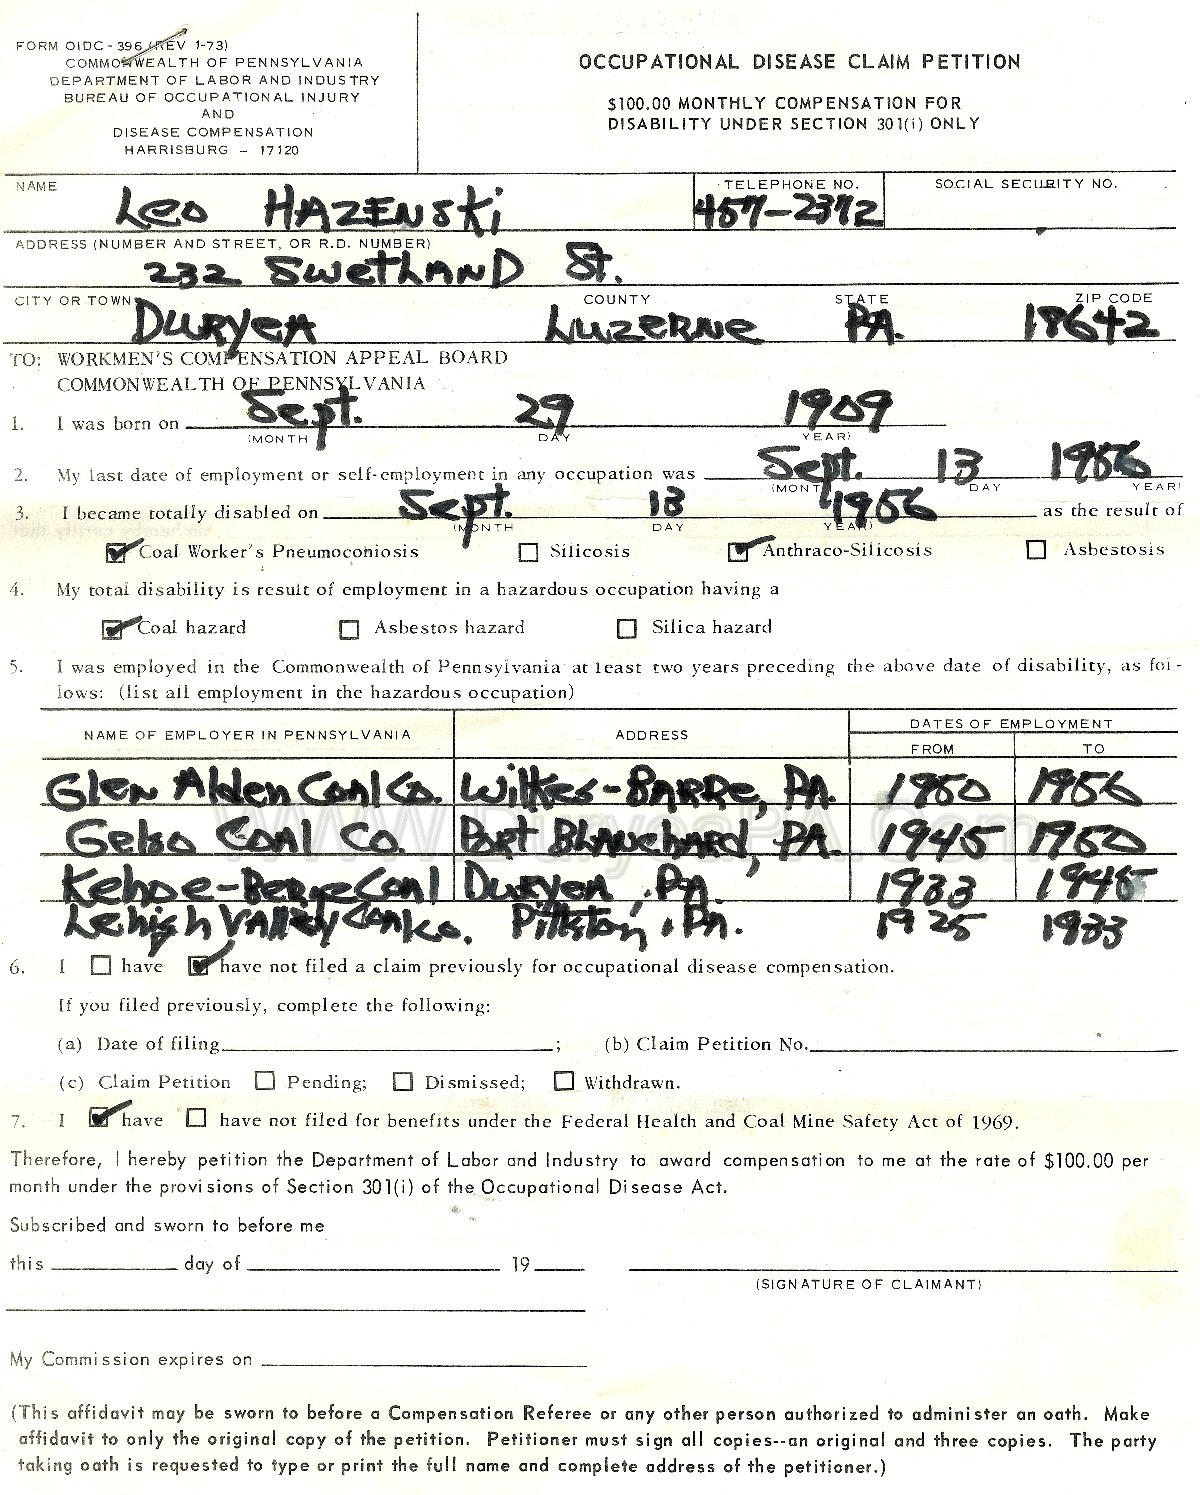 FORM OIDC-396 (REV 1-73)
COMMONWEALTH OF PENNSYLVANIA
DEPARTMENT OF LABOR AND INDUSTRY
BUREAU OF OCCUPATIONAL INJURY
AND
DISEASE COMPENSATION
HARRISBURG – 17120
OCCUPATIONAL DISEASE CLAIM PETITION
$100.00 MONTHLY COMPENSATION FOR
DISABILITY UNDER SECTION 301(i) ONLY
NAME TELEPHONE NO. SOCIAL SECURITY NO.
Leo HAZENSki 457-2372
ADDRESS (NUMBER AND STREET, OR R.D. NUMBER)
232 SwetLAND St.
CITY OR TOWN COUNTY STATE ZIP CODE
DURYEA Luzerne PA. 18642
TO: WORKMEN'S COMPENSATION APPEAL BOARD
COMMONWEALTH OF PENNSYLVANIA
1. I was born on Sept. 29 1909
(MONTH DAY YEAR)
2. My last date of employment or self-employment in any occupation was Sept. 13 1956
(MONTH DAY YEAR)
3. I became totally disabled on Sept. 13 1956 as the result of
(MONTH DAY YEAR)
Coal Worker's Pneumoconiosis Silicosis Anthraco-Silicosis Asbestosis
4. My total disability is result of employment in a hazardous occupation having a
Coal hazard Asbestos hazard Silica hazard
5. I was employed in the Commonwealth of Pennsylvania at least two years preceding the above date of disability, as fol-
lows: (list all employment in the hazardous occupation)
NAME OF EMPLOYER IN PENNSYLVANIA ADDRESS DATES OF EMPLOYMENT
FROM TO
Glen Alden Coal Co. Wilkes-BARRe, PA. 1950 1956
Gelso Coal Co. Port Blanchard, PA. 1945 1950
Kehoe-Berge Coal Duryea, PA. 1933 1945
Lehigh Valley Coal Co. Pittston, Pa. 1925 1933
www.DuryeaPA.com
6. I have have not filed a claim previously for occupational disease compensation.
If you filed previously, complete the following:
(a) Date of filing ; (b) Claim Petition No.
(c) Claim Petition Pending; Dismissed; Withdrawn.
7. I have have not filed for benefits under the Federal Health and Coal Mine Safety Act of 1969.
Therefore, I hereby petition the Department of Labor and Industry to award compensation to me at the rate of $100.00 per
month under the provisions of Section 301(i) of the Occupational Disease Act.
Subscribed and sworn to before me
this day of 19
(SIGNATURE OF CLAIMANT)
My Commission expires on
(This affidavit may be sworn to before a Compensation Referee or any other person authorized to administer an oath. Make
affidavit to only the original copy of the petition. Petitioner must sign all copies--an original and three copies. The party
taking oath is requested to type or print the full name and complete address of the petitioner.)